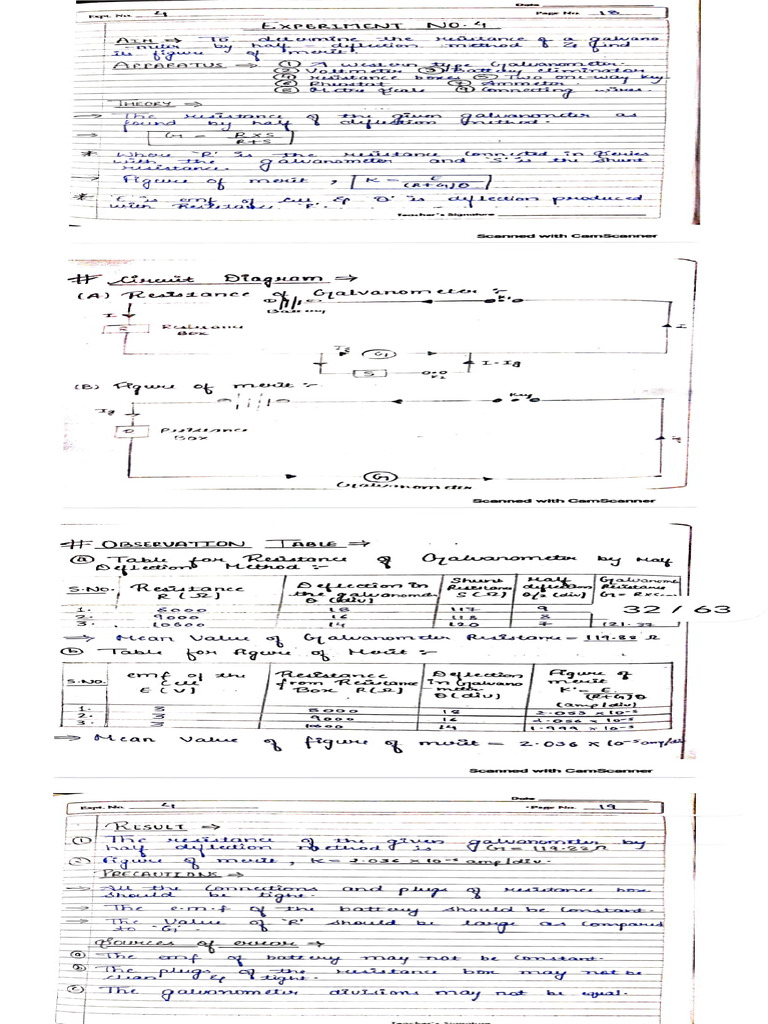 Date
Expt. No. 4 Page No. 18
EXPERIMENT NO. 4
AIM → To determine the resistance of a galvano
-meter by half deflection method & find
its figure of merit.
APPARATUS → ① A Weston type Galvanometer
② Voltmeter ③ Battery eliminator
④ resistance boxes ⑤ Two one way key
⑥ Rheostat ⑦ Ammeter
⑧ Metre scale ⑨ Connecting wires.
THEORY →
→ The resistance of the given galvanometer as
found by half of deflection method.
→ G = R×S / R+S
* Where 'R' is the resistance connected in series
with the galvanometer and 'S' is the shunt
resistance.
→ Figure of merit, K = E / (R+G)θ
* 'E' is emf of cell & 'θ' is deflection produced
with Resistance 'R'.
Teacher's Signature
Scanned with CamScanner
# Circuit Diagram →
(A) Resistance of Galvanometer :-
Battery K1
I
R Resistance
Box
I
Ig G
I - Ig
S K2
(B) Figure of merit :-
Key
Ig
Resistance
Box
G
Galvanometer
Scanned with CamScanner
# OBSERVATION TABLE →
ⓐ Table for Resistance of Galvanometer by Half
Deflection Method :-
S.No. Resistance R (Ω) Deflection in the galvanometer θ (div) Shunt Resistance S (Ω) Half deflection θ/2 (div) Galvanome Resistance
1. 8000 18 117 9
2. 9000 16 118 8
3. 10600 14 120 7 121.37
32 / 63
→ Mean Value of Galvanometer Resistance = 119.22 Ω
ⓑ Table for figure of Merit :-
S.No. emf of the Cell E (V) Resistance from Resistance Box R(Ω) Deflection In Galvano meter θ (div) Figure of merit K = E / (R+G)θ (amp/div)
1. 3 8000 18 2.053 × 10⁻⁵
2. 3 9000 16 2.056 × 10⁻⁵
3. 3 10600 14 1.999 × 10⁻⁵
→ Mean Value of figure of merit = 2.036 × 10⁻⁵ amp/div
Scanned with CamScanner
Date
Expt. No. 4 Page No. 19
RESULT →
① The resistance of the given galvanometer by
half deflection method is G = 119.22 Ω
② Figure of merit, K = 2.036 × 10⁻⁵ amp/div.
PRECAUTIONS →
→ All the connections and plugs of resistance box
should be tight.
→ The e.m.f of the battery should be constant.
→ The Value of 'R' should be large as compared
to 'G'.
Sources of error →
ⓐ The emf of battery may not be constant.
ⓑ The plugs of the resistance box may not be
clean & tight.
ⓒ The galvanometer divisions may not be equal.
Teacher's Signature